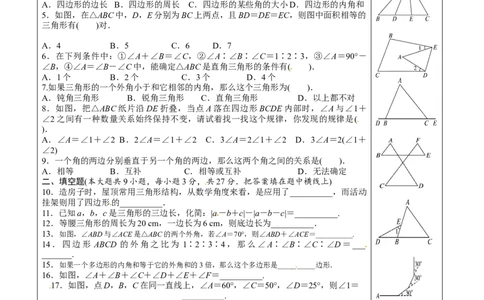 A．四边形的边长 B．四边形的周长 C．四边形的某些角的大小 D．四边形的内角和
5．如图，在△ABC中，D、E分别为BC上两点，且BD=DE=EC，则图中面积相等的
三角形有( )对．
A．4 B．5 C．6 D．7
6．在下列条件中：①∠A＋∠B＝∠C，②∠A∶∠B∶∠C＝1∶2∶3，③∠A＝90°－
∠B，④∠A＝∠B－∠C中，能确定△ABC是直角三角形的条件有( )．
A．1个 B．2个 C．3个 D．4个
7.如果三角形的一个外角小于和它相邻的内角，那么这个三角形为( )．
A．钝角三角形 B．锐角三角形 C．直角三角形 D．以上都不对
8．如图，把△ABC纸片沿DE折叠，当点A落在四边形BCDE内部时，∠A与∠1＋
∠2之间有一种数量关系始终保持不变，请试着找一找这个规律，你发现的规律是(
)．
A．∠A＝∠1＋∠2 B．2∠A＝∠1＋∠2 C．3∠A＝2∠1＋∠2 D．3∠A=2(∠1＋
∠2)
9．一个角的两边分别垂直于另一个角的两边，那么这两个角之间的关系是( )．
A．相等 B．互补 C．相等或互补 D．无法确定
二、填空题(本大题共9小题，每小题3分，共27分．把答案填在题中横线上)
10．造房子时，屋顶常用三角形结构，从数学角度来看，是应用了________，而活动
挂架则用了四边形的________．
11．已知a，b，c是三角形的三边长，化简：|a－b＋c|－|a－b－c|＝________．
12．等腰三角形的周长为20 cm，一边长为6 cm，则底边长为________．
13．如图，∠ABD与∠ACE是△ABC的两个外角，若∠A＝70°，则∠ABD＋∠ACE＝________．
14．四边形ABCD的外角之比为1∶2∶3∶4，那么∠A∶∠B∶∠C∶∠D＝___
________．
15．如果一个多边形的内角和等于它的外角和的3倍，那么这个多边形是________边形．
16．如图，∠A＋∠B＋∠C＋∠D＋∠E＋∠F＝________．
17．如图，点D，B，C在同一直线上，∠A＝60°，∠C＝50°，∠D＝25°，则∠1＝
________．
B D E C
B
E
A
C
D
A
D B C E
A E
B F
C D
A
E
D B C
30°
30°
30°
A